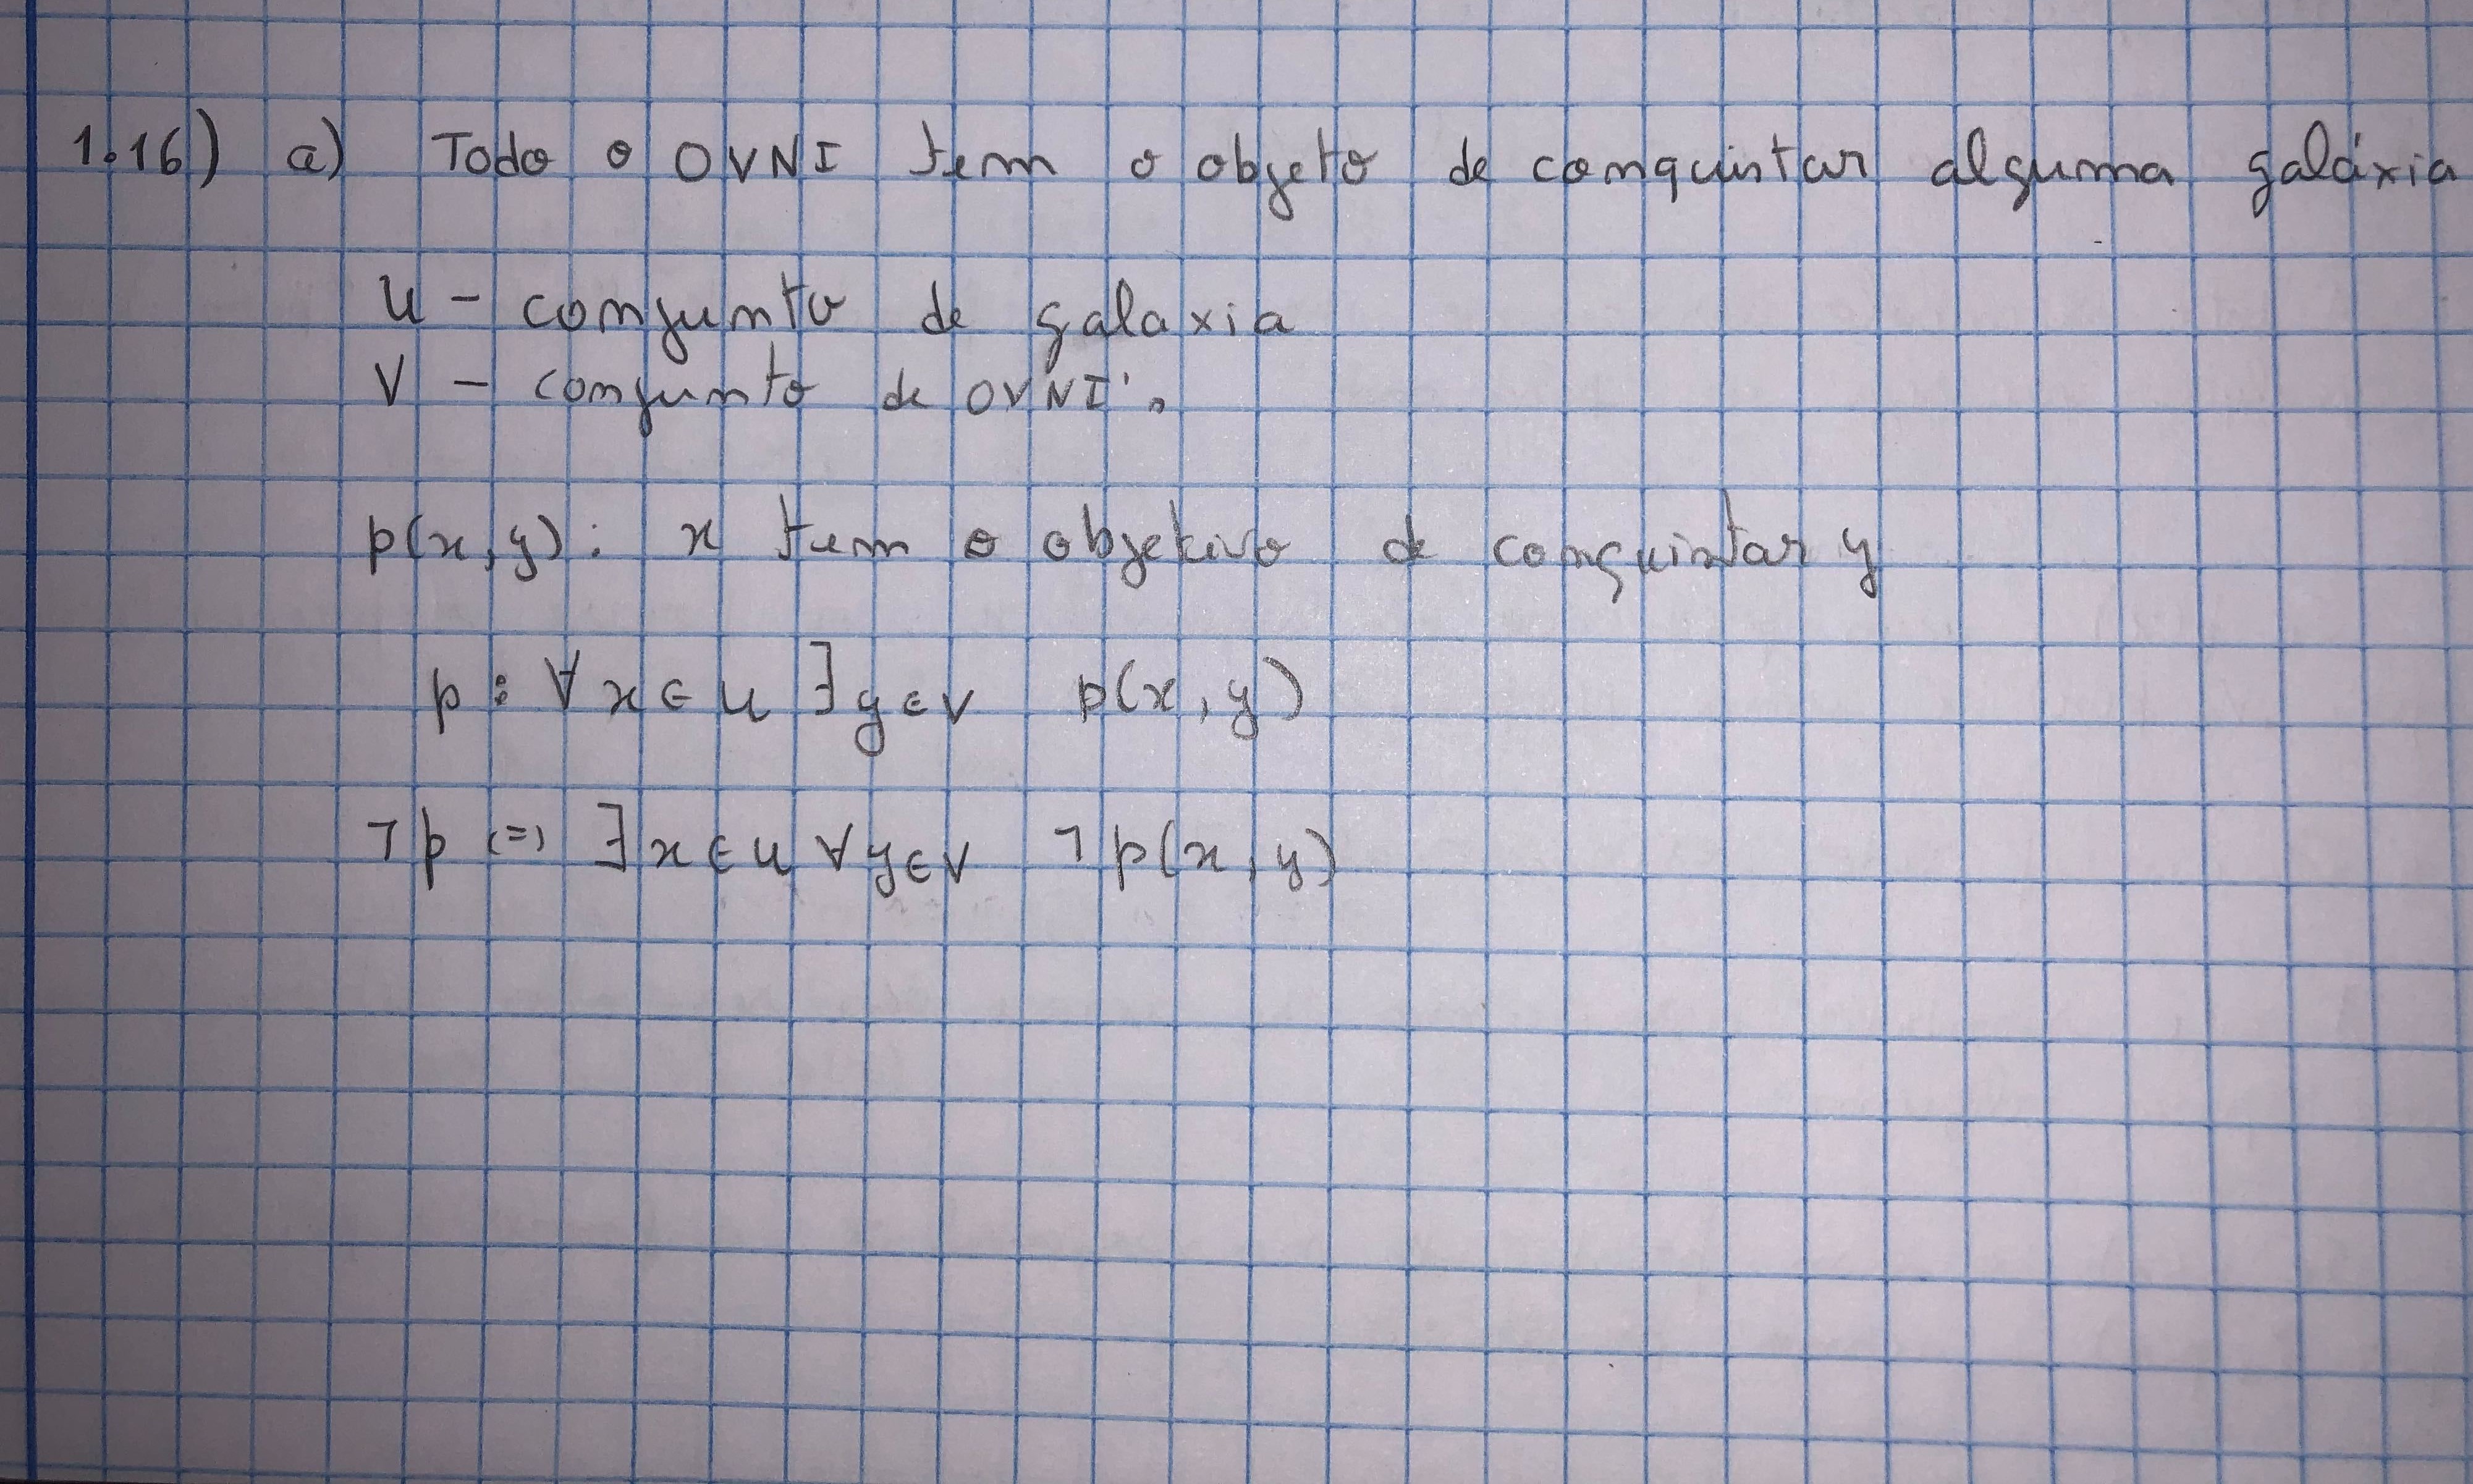 1.16) a) Todo o OVNI tem o objeto de conquistar alguma galáxia
U - conjunto de galaxia
V - conjunto de OVNI's
p(x,y): x tem o objetivo de conquistar y
p: ∀x∈U ∃y∈V p(x,y)
¬p (=) ∃x∈U ∀y∈V ¬p(x,y)